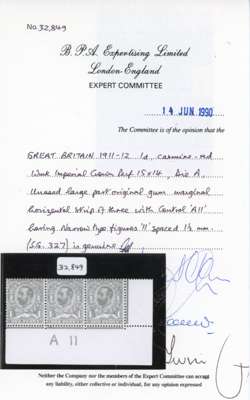 No. 32,849
B. P. A. Expertising Limited
London-England
EXPERT COMMITTEE
14 JUN 1990
The Committee is of the opinion that the
GREAT BRITAIN 1911-12 1d, carmine-red
Wmk Imperial Crown Perf. 15x14, Die A,
Unused large part original gum marginal
horizontal strip of three with Control 'A11'
having Narrow type figures '11' spaced 1½ mm
(S.G. 327) is genuine.
32,849
A 11
Neither the Company nor the members of the Expert Committee can accept
any liability, either collective or individual, for any opinion expressed